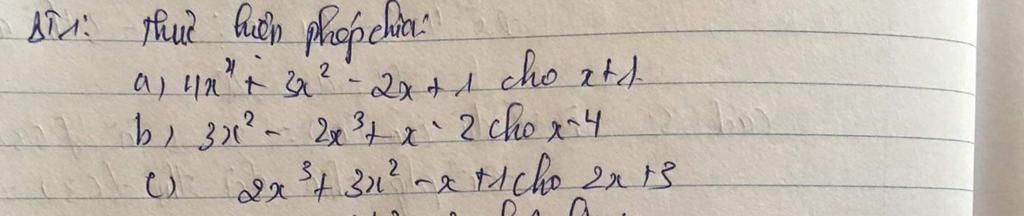 BT1: Thực hiện phép chia:
a) 4x⁴ + 3x² - 2x + 1 cho x + 1
b) 3x² - 2x³ + x - 2 cho x - 4
c) 2x³ + 3x² - x + 1 cho 2x + 3